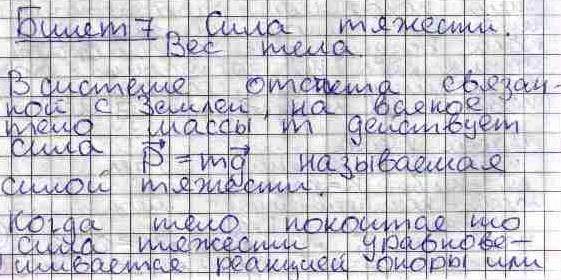 Билет 7 Сила тяжести.
Вес тела
В системе отсчета связан-
ной с Землей, на всякое
тело массы m действует
сила P⃗ = mg⃗ называемая
силой тяжести.
Когда тело покоится то
сила тяжести уравнове-
шивается реакцией опоры или